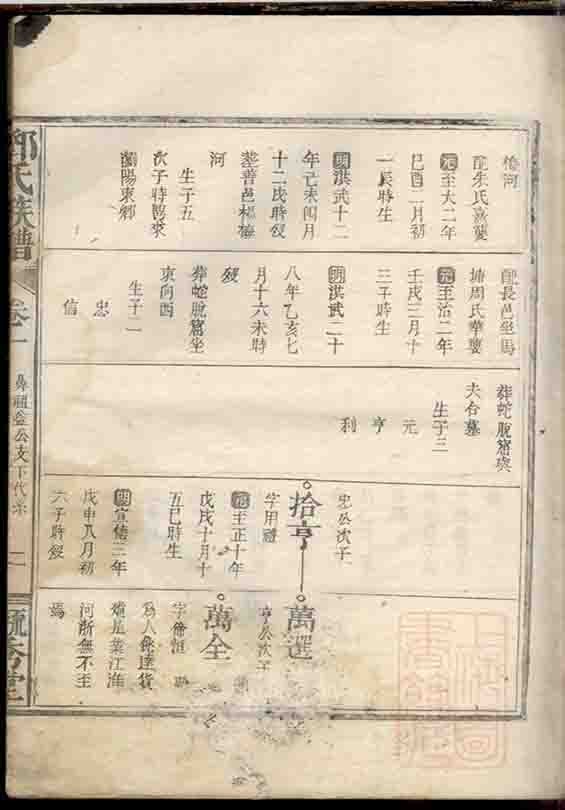 橋河
配朱氏
元至大二年
己酉二月初
一辰時生
明洪武十二
年己未四月
十二戌時歿
葬普邑楊梅
河
生子五
次子時
陽東鄉
配長邑坐馬
塘周氏華嬰
元至治二年
壬戌三月十
三子時生
明洪武二十
八年乙亥七
月十六未時
歿
葬蛇脫窩坐
東向西
生子二
忠
信
葬蛇脫窩與
夫合墓
生子三
元
亨
利
忠公次子
拾亨
字用禮
元至正十年
戊戌十月十
五巳時生
明宣德三年
戊申八月初
六子時歿
萬選
亨公次子
萬全
字
為人
業江淮
河浙無不至
焉
鄧氏族譜
卷一
鼻祖益公支下代系
二
毓秀堂